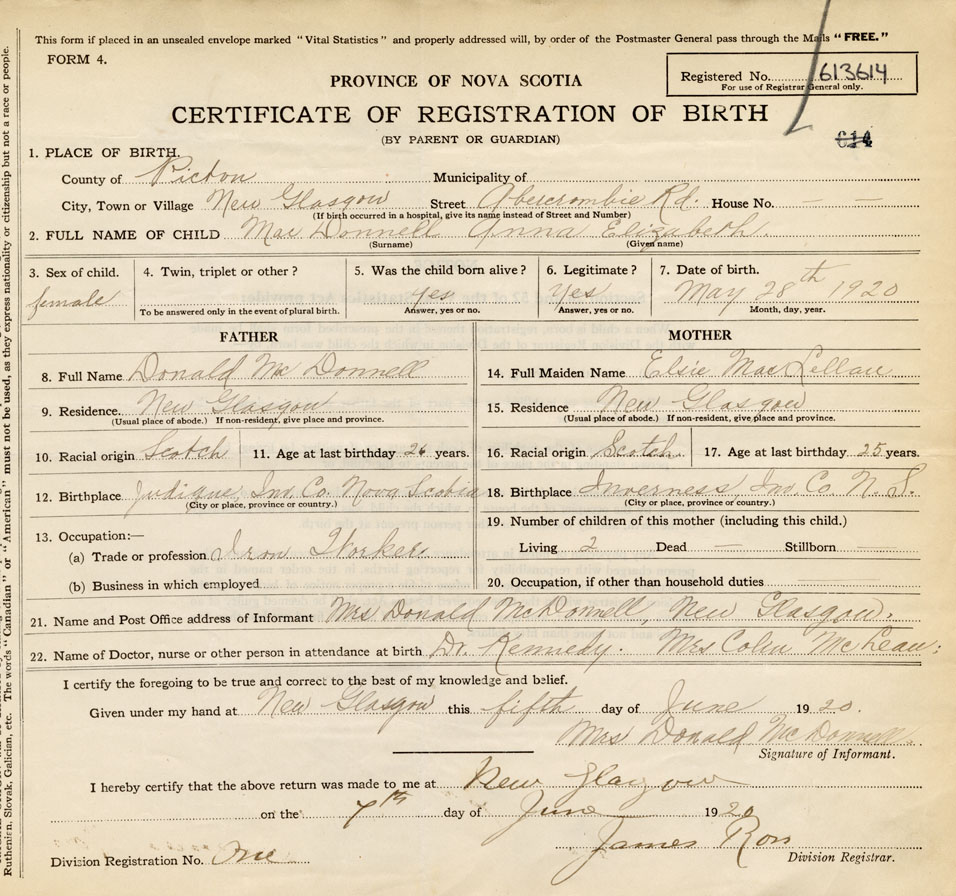 This form if placed in an unsealed envelope marked "Vital Statistics" and properly addressed will, by order of the Postmaster General pass through the Mails "FREE."
FORM 4.
Registered No. 613614
For use of Registrar General only.
PROVINCE OF NOVA SCOTIA
CERTIFICATE OF REGISTRATION OF BIRTH
(BY PARENT OR GUARDIAN)
614
1. PLACE OF BIRTH.
County of Pictou Municipality of
City, Town or Village New Glasgow Street Abercrombie Rd. House No. — —
(If birth occurred in a hospital, give its name instead of Street and Number)
2. FULL NAME OF CHILD Mac Donnell Anna Elizabeth.
(Surname) (Given name)
3. Sex of child. 4. Twin, triplet or other? 5. Was the child born alive? 6. Legitimate? 7. Date of birth.
female yes Yes May 28th 1920
To be answered only in the event of plural birth. Answer, yes or no. Answer, yes or no. Month, day, year.
FATHER
8. Full Name Donald Mc Donnell
9. Residence. New Glasgow
(Usual place of abode.) If non-resident, give place and province.
10. Racial origin Scotch 11. Age at last birthday 26 years.
12. Birthplace Judique, Inv. Co. Nova Scotia
(City or place, province or country.)
13. Occupation:—
(a) Trade or profession Iron Worker
(b) Business in which employed
MOTHER
14. Full Maiden Name Elsie MacLellan
15. Residence New Glasgow
(Usual place of abode.) If non-resident, give place and province.
16. Racial origin Scotch. 17. Age at last birthday 25 years.
18. Birthplace Inverness Inv Co. N. S.
(City or place, province or country.)
19. Number of children of this mother (including this child.)
Living 2 Dead — Stillborn —
20. Occupation, if other than household duties
21. Name and Post Office address of Informant Mrs Donald McDonnell, New Glasgow.
22. Name of Doctor, nurse or other person in attendance at birth Dr. Kennedy. Mrs Colin McLean.
I certify the foregoing to be true and correct to the best of my knowledge and belief.
Given under my hand at New Glasgow this fifth day of June 1920.
Mrs Donald McDonnell.
Signature of Informant.
I hereby certify that the above return was made to me at New Glasgow
on the 7th day of June 1920
James Ross
Division Registrar.
Division Registration No. One
must not be used, as they express nationality or citizenship but not a race or people.
Ruthenien, Slovak, Galician, etc. The words "Canadian" or "American"